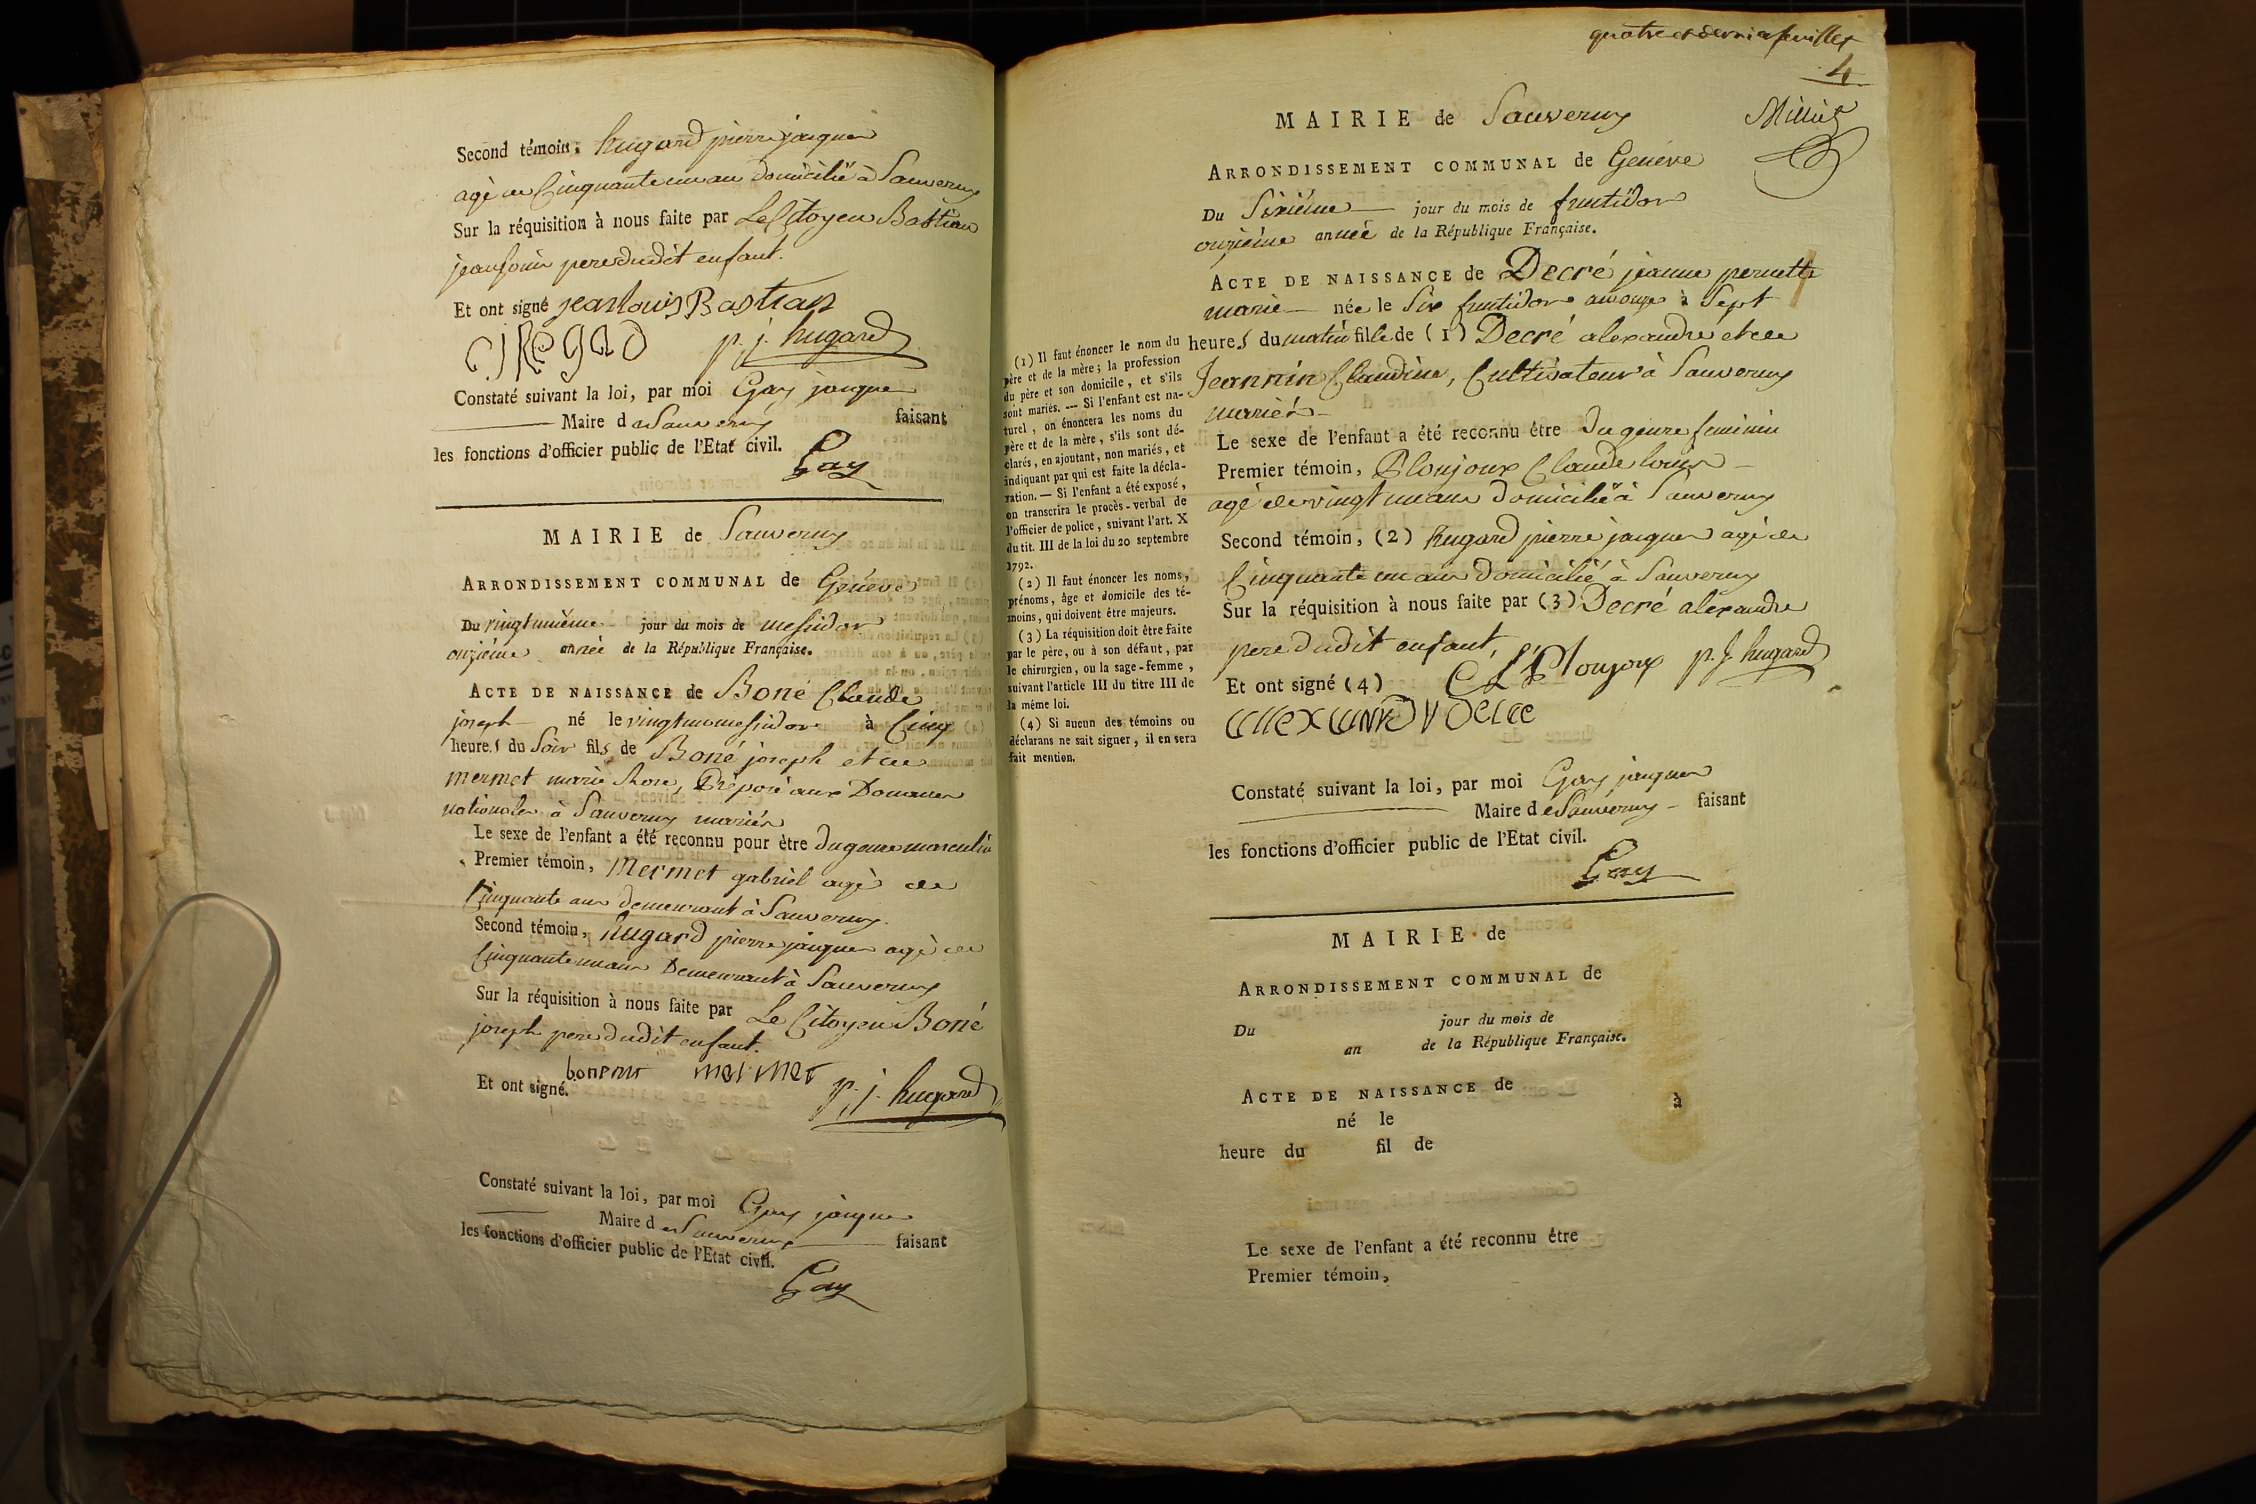 Second témoin, hugard pierre jacques
agé de Cinquante un ans domicilié à Sauverny
Sur la réquisition à nous faite par Le Citoyen Bastian
jean louis pere dudit enfant.
Et ont signé jean louis Bastian
p. j. hugard
Constaté suivant la loi, par moi Gay jacques
Maire de Sauverny faisant
les fonctions d'officier public de l'Etat civil.
Gay
MAIRIE de Sauverny
ARRONDISSEMENT COMMUNAL de Genève
Du vingt unième jour du mois de messidor
onzième année de la République Française.
ACTE DE NAISSANCE de Boné Claude
joseph né le vingt un messidor à Cinq
heures du Soir fils de Boné joseph et de
mermet marie Rose, Préposé aux Douanes
nationales à Sauverny mariés
Le sexe de l'enfant a été reconnu pour être du genre masculin
Premier témoin, Mermet gabriel agé de
Cinquante ans demeurant à Sauverny.
Second témoin, hugard pierre jacques agé de
Cinquante un ans Demeurant à Sauverny
Sur la réquisition à nous faite par Le Citoyen Boné
joseph pere dudit enfant.
mermet p. j. hugard
Et ont signé.
Constaté suivant la loi, par moi Gay jacques
Maire de Sauverny faisant
les fonctions d'officier public de l'Etat civil.
Gay
quatre et dernier feuillet
4
MAIRIE de Sauverny
ARRONDISSEMENT COMMUNAL de Genève
Du Sixiéme jour du mois de fructidor
onzième année de la République Française.
ACTE DE NAISSANCE de Decré jeanne pernette
marie née le Six fructidor an onze à Sept
heures du matin fille de (1) Decré alexandre et de
Jeannin Claudine, Cultivateur à Sauverny
mariés
Le sexe de l'enfant a été reconnu être du genre feminin
Premier témoin, Plonjoux Claude louis
agé de vingt un ans domicilié à Sauverny
Second témoin, (2) hugard pierre jacques agé de
Cinquante un ans domicilié à Sauverny
Sur la réquisition à nous faite par (3) Decré alexandre
pere dudit enfant,
Et ont signé (4) C L Plonjoux p. j. hugard
Constaté suivant la loi, par moi Gay jacques
Maire de Sauverny faisant
les fonctions d'officier public de l'Etat civil.
Gay
(1) Il faut énoncer le nom du
père et de la mère; la profession
du père et son domicile, et s'ils
sont mariés. — Si l'enfant est na-
turel, on énoncera les noms du
père et de la mère, s'ils sont dé-
clarés, en ajoutant, non mariés, et
indiquant par qui est faite la décla-
ration. — Si l'enfant a été exposé,
on transcrira le procès-verbal de
l'officier de police, suivant l'art. X
du tit. III de la loi du 20 septembre
1792.
(2) Il faut énoncer les noms,
prénoms, âge et domicile des té-
moins, qui doivent être majeurs.
(3) La réquisition doit être faite
par le père, ou à son défaut, par
le chirurgien, ou la sage-femme,
suivant l'article III du titre III de
la même loi.
(4) Si aucun des témoins ou
déclarans ne sait signer, il en sera
fait mention.
MAIRIE de
ARRONDISSEMENT COMMUNAL de
Du jour du mois de
an de la République Française.
ACTE DE NAISSANCE de
né le à
heure du fil de
Le sexe de l'enfant a été reconnu être
Premier témoin,